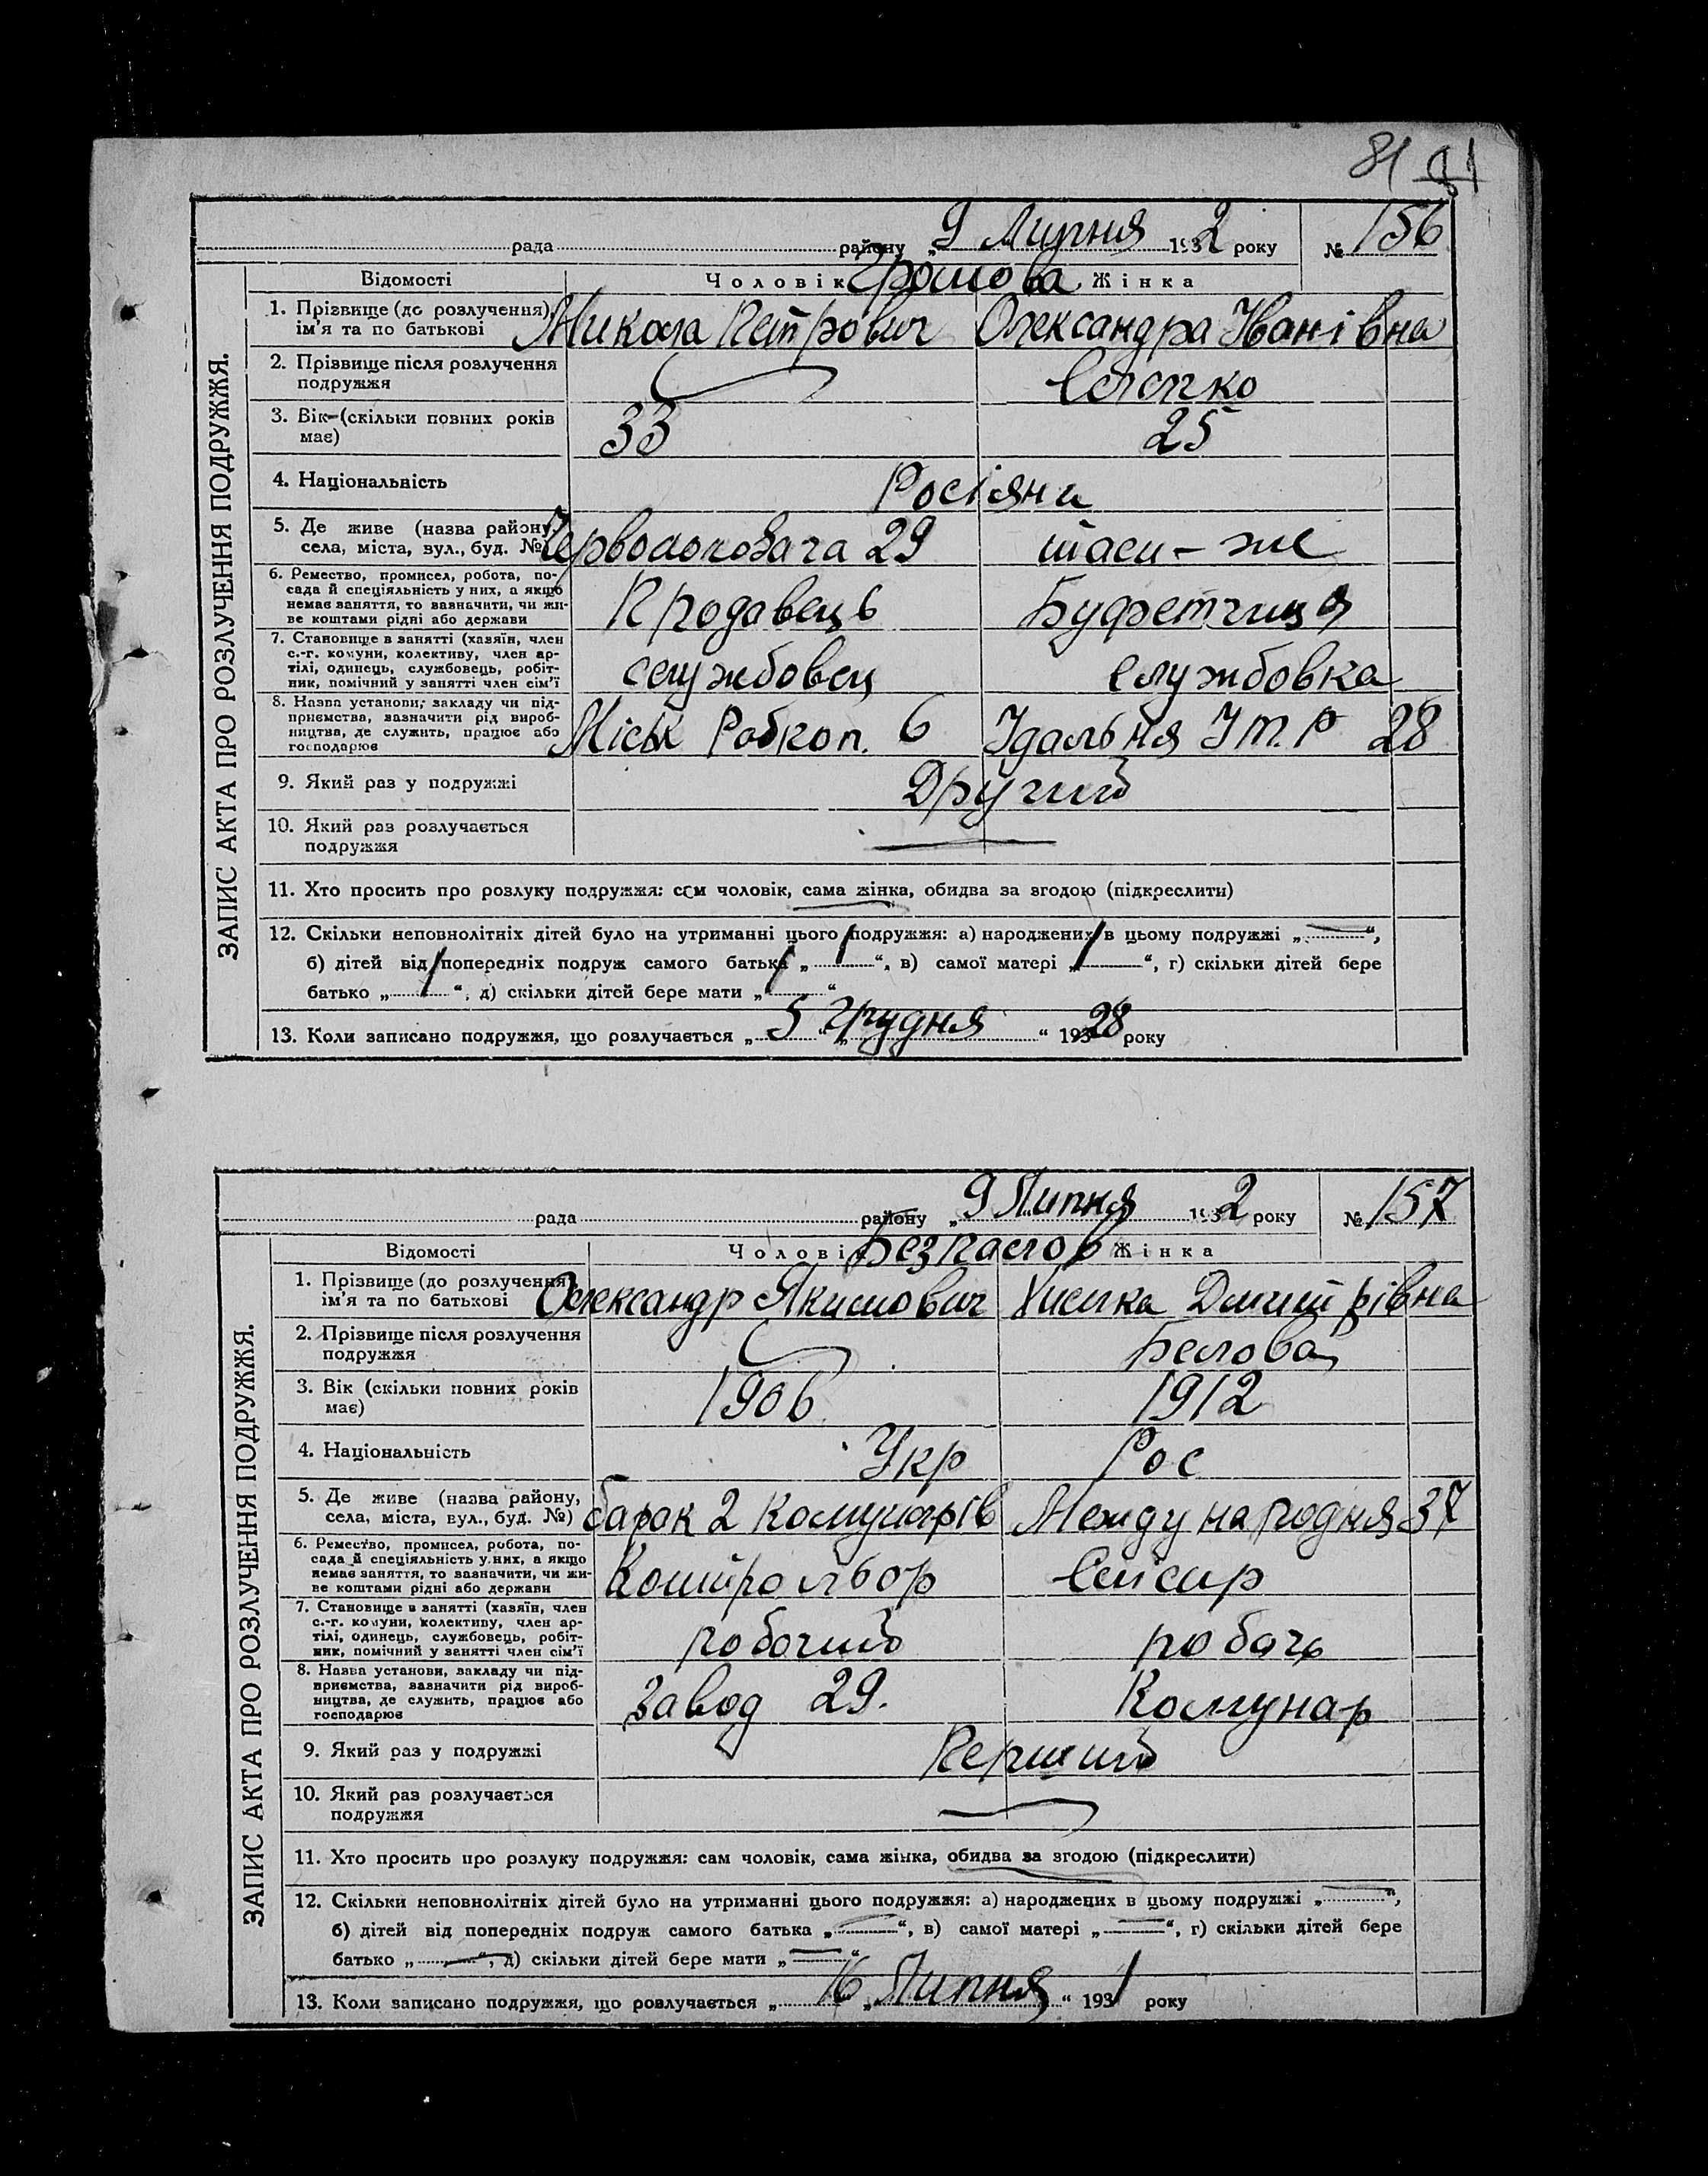 81 91
рада району „ 9 Липня 1932 року № 156
Відомості Чоловік Громова Жінка
ЗАПИС АКТА ПРО РОЗЛУЧЕННЯ ПОДРУЖЖЯ.
1. Прізвище (до розлучення), ім'я та по батькові Микола Петрович Олександра Іванівна
2. Прізвище після розлучення
подружжя
3. Вік (скільки повних років 33 25
має)
4. Національність Росіяни
5. Де живе (назва району,
села, міста, вул., буд. № 29 там-же
6. Ремество, промисел, робота, по-
сада й спеціяльність у них, а якщо
немає заняття, то зазначити, чи жи- Продавець Буфетчиця
ве коштами рідні або держави
7. Становище в занятті (хазяїн, член
с.-г. комуни, колективу, член ар-
тілі, одинець, службовець, робіт- службовец службовка
ник, помічний у занятті член сім'ї
8. Назва установи, закладу чи під-
приємства, зазначити рід вироб-
ництва, де служить, працює або Міськ Робкоп. 6 Їдальня ІТ.Р 28
господарює
9. Який раз у подружжі Другий
10. Який раз розлучається
подружжя
11. Хто просить про розлуку подружжя: сам чоловік, сама жінка, обидва за згодою (підкреслити)
12. Скільки неповнолітніх дітей було на утриманні цього подружжя: а) народжених в цьому подружжі „ “,
б) дітей від попередніх подруж самого батька „ “, в) самої матері „ “, г) скільки дітей бере
батько „ “, д) скільки дітей бере мати „ “
13. Коли записано подружжя, що розлучається „ 5 „ Грудня “ 19328 року
рада району „ 9 Липня 1932 року № 157
Відомості Чоловік Жінка
ЗАПИС АКТА ПРО РОЗЛУЧЕННЯ ПОДРУЖЖЯ.
1. Прізвище (до розлучення)
ім'я та по батькові Олександр Якимович Дмитрівна
2. Прізвище після розлучення Белова
подружжя
3. Вік (скільки повних років 1906 1912
має)
4. Національність Укр Рос
5. Де живе (назва району,
села, міста, вул., буд. №) барак 2 Комунарів Международня 37
6. Ремество, промисел, робота, по-
сада й спеціяльність у них, а якщо
немає заняття, то зазначити, чи жи- Контрольор
ве коштами рідні або держави
7. Становище в занятті (хазяїн, член
с.-г. комуни, колективу, член ар-
тілі, одинець, службовець, робіт- робочий
ник, помічний у занятті член сім'ї
8. Назва установи, закладу чи під-
приємства, зазначити рід вироб-
ництва, де служить, працює або завод 29. Комунар
господарює
9. Який раз у подружжі Перший
10. Який раз розлучається
подружжя
11. Хто просить про розлуку подружжя: сам чоловік, сама жінка, обидва за згодою (підкреслити)
12. Скільки неповнолітніх дітей було на утриманні цього подружжя: а) народжених в цьому подружжі „ “,
б) дітей від попередніх подруж самого батька „ “, в) самої матері „ “, г) скільки дітей бере
батько „ “, д) скільки дітей бере мати „ “
13. Коли записано подружжя, що розлучається „ 16 „ Липня “ 1931 року